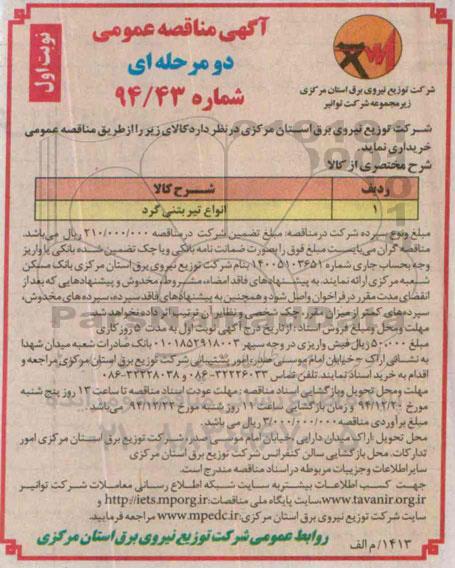 آگهی مناقصه عمومی
دو مرحله ای
شماره ۹۴/۴۳
نوبت اول
شرکت توزیع نیروی برق استان مرکزی
زیرمجموعه شرکت توانیر
شرکت توزیع نیروی برق استان مرکزی درنظر دارد کالای زیر را از طریق مناقصه عمومی
خریداری نماید.
شرح مختصری از کالا
ردیف شرح کالا
۱ انواع تیر بتنی گرد
مبلغ و نوع سپرده شرکت در مناقصه: مبلغ تضمین شرکت در مناقصه ۲۱۰/۰۰۰/۰۰۰ ریال می باشد.
مناقصه گران می بایست مبلغ فوق را بصورت ضمانت نامه بانکی و یا چک تضمین شده بانکی یا واریز
وجه بحساب جاری شماره ۱۴۰۰۵۱۰۳۶۵۱ بنام شرکت توزیع نیروی برق استان مرکزی بانک مسکن
شعبه مرکزی ارائه نمایند. به پیشنهادهای فاقد امضاء، مشروط، مخدوش و پیشنهادهایی که بعد از
انقضای مدت مقرر در فراخوان واصل شود و همچنین به پیشنهادهای فاقد سپرده، سپرده های مخدوش،
سپرده های کمتر از میزان مقرر، چک شخصی و نظایر آن ترتیب اثر داده نخواهد شد.
مهلت و محل و مبلغ فروش اسناد: از تاریخ درج آگهی نوبت اول به مدت ۵ روز کاری
مبلغ ۵۰۰/۰۰۰ ریال فیش واریزی در وجه سپهر ۰۱۰۱۸۵۲۹۱۸۰۰۳ بانک صادرات شعبه میدان شهدا
به نشانی اراک - خیابان امام موسی صدر، امور پشتیبانی شرکت توزیع برق استان مرکزی مراجعه و
اقدام به خرید اسناد نمایند. تلفن تماس ۳۲۲۲۶۰۳۳-۰۸۶ و ۳۲۲۲۸۰۳۸-۰۸۶
مهلت و محل تحویل و بازگشایی اسناد مناقصه: مهلت عودت اسناد مناقصه تا ساعت ۱۳ روز پنج شنبه
مورخ ۹۴/۱۲/۲۰ و زمان بازگشایی ساعت ۱۱ روز شنبه مورخ ۹۴/۱۲/۲۲ می باشد.
مبلغ برآوردی مناقصه ۳/۰۰۰/۰۰۰/۰۰۰ ریال می باشد.
محل تحویل: اراک میدان دارایی، خیابان امام موسی صدر، شرکت توزیع برق استان مرکزی امور
تدارکات. محل بازگشایی سالن کنفرانس شرکت توزیع برق استان مرکزی
سایر اطلاعات و جزییات مربوطه در اسناد مناقصه مندرج است.
جهت کسب اطلاعات بیشتر به سایت شبکه اطلاع رسانی معاملات شرکت توانیر
www.tavanir.org.ir، سایت پایگاه ملی مناقصات: http://iets.mporg.ir و
سایت شرکت توزیع نیروی برق استان مرکزی: www.mpedc.ir مراجعه فرمایید.
۱۴۱۳/م الف روابط عمومی شرکت توزیع نیروی برق استان مرکزی